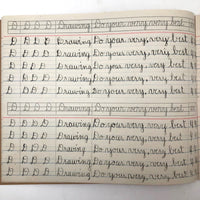 D D D D Drawing Do your very, very best
D D D D Drawing Do your very, very best
D D D D Drawing Do your very, very best
D D D D Drawing Do your very, very best
D D D D Drawing Do your very, very best
D D D D Drawing Do your very, very best
D D D D Drawing Do your very, very best
D D D D Drawing Do your very, very best
D D D D Drawing Do your very, very best
D D D D Drawing Do your very, very best
D D D D Drawing Do your very, very best
D D D D Drawing Do your very, very best